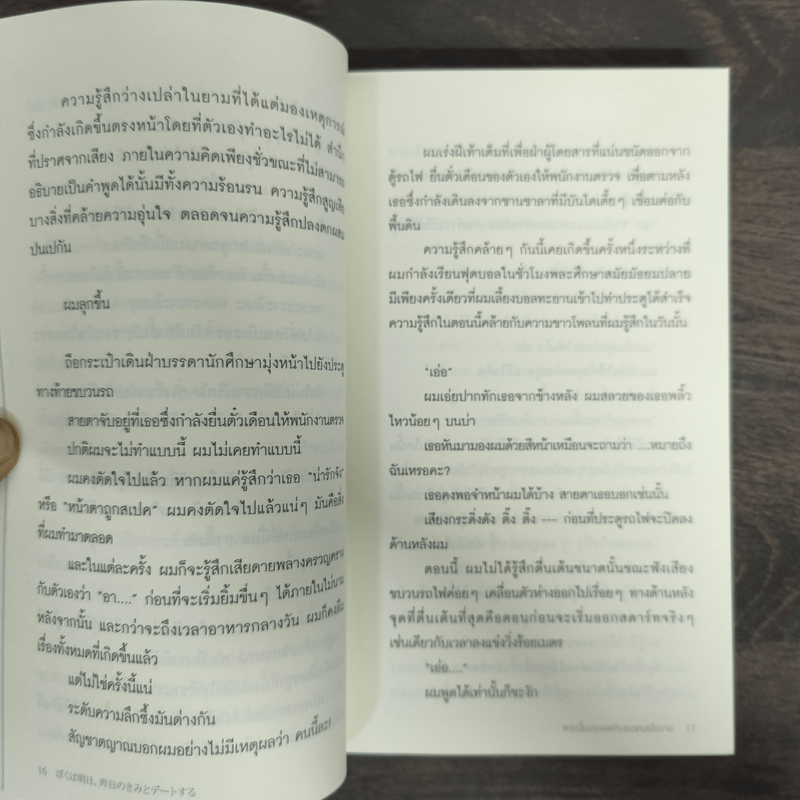 ความรู้สึกว่างเปล่าในยามที่ได้แต่มองเหตุการณ์
ซึ่งกำลังเกิดขึ้นตรงหน้าโดยที่ตัวเองทำอะไรไม่ได้
ที่ปราศจากเสียง ภายในความคิดเพียงชั่วขณะที่ไม่สามารถ
อธิบายเป็นคำพูดได้นั้นมีทั้งความร้อนรน ความรู้สึกสูญเสีย
บางสิ่งที่คล้ายความอุ่นใจ ตลอดจนความรู้สึกปลงตกผสม
ปนเปกัน
ผมลุกขึ้น
ถือกระเป๋าเดินฝ่าบรรดานักศึกษามุ่งหน้าไปยังประตู
ทางท้ายขบวนรถ
สายตาจับอยู่ที่เธอซึ่งกำลังยื่นตั๋วเดือนให้พนักงานตรวจ
ปกติผมจะไม่ทำแบบนี้ ผมไม่เคยทำแบบนี้
ผมคงตัดใจไปแล้ว หากผมแค่รู้สึกว่าเธอ "น่ารักจัง"
หรือ "หน้าตาถูกสเปค" ผมคงตัดใจไปแล้วแน่ๆ มันคือสิ่ง
ที่ผมทำมาตลอด
และในแต่ละครั้ง ผมก็จะรู้สึกเสียดายพลางครวญคราง
กับตัวเองว่า "อา...." ก่อนที่จะเริ่มยิ้มขื่นๆ ได้ภายในไม่นาน
หลังจากนั้น และกว่าจะถึงเวลาอาหารกลางวัน ผมก็คงลืม
เรื่องทั้งหมดที่เกิดขึ้นแล้ว
แต่ไม่ใช่ครั้งนี้แน่
ระดับความลึกซึ้งมันต่างกัน
สัญชาตญาณบอกผมอย่างไม่มีเหตุผลว่า คนนี้ละ!
16 ぼくは明日、昨日のきみとデートする
ผมเร่งฝีเท้าเต็มที่เพื่อฝ่าผู้โดยสารที่แน่นขนัดออกจาก
ตู้รถไฟ ยื่นตั๋วเดือนของตัวเองให้พนักงานตรวจ เพื่อตามหลัง
เธอซึ่งกำลังเดินลงจากชานชาลาที่มีบันไดเตี้ยๆ เชื่อมต่อกับ
พื้นดิน
ความรู้สึกคล้ายๆ กันนี้เคยเกิดขึ้นครั้งหนึ่งระหว่างที่
ผมกำลังเรียนฟุตบอลในชั่วโมงพละศึกษาสมัยมัธยมปลาย
มีเพียงครั้งเดียวที่ผมเลี้ยงบอลทะยานเข้าไปทำประตูได้สำเร็จ
ความรู้สึกในตอนนี้คล้ายกับความขาวโพลนที่ผมรู้สึกในวันนั้น
"เอ่อ"
ผมเอ่ยปากทักเธอจากข้างหลัง ผมสลวยของเธอพลิ้ว
ไหวน้อยๆ บนบ่า
เธอหันมามองผมด้วยสีหน้าเหมือนจะถามว่า ....หมายถึง
ฉันเหรอคะ?
เธอคงพอจำหน้าผมได้บ้าง สายตาเธอบอกเช่นนั้น
เสียงกระดิ่งดัง ติ๊ง ติ๊ง --- ก่อนที่ประตูรถไฟจะปิดลง
ด้านหลังผม
ตอนนี้ ผมไม่ได้รู้สึกตื่นเต้นขนาดนั้นขณะฟังเสียง
ขบวนรถไฟค่อยๆ เคลื่อนตัวห่างออกไปเรื่อยๆ ทางด้านหลัง
จุดที่ตื่นเต้นที่สุดคือตอนก่อนจะเริ่มออกสตาร์ทจริงๆ
เช่นเดียวกับเวลาลงแข่งวิ่งร้อยเมตร
"เอ่อ...."
ผมพูดได้เท่านั้นก็ชะงัก
พรุ่งนี้ผมจะเดตกับเธอคนเมื่อวาน 17